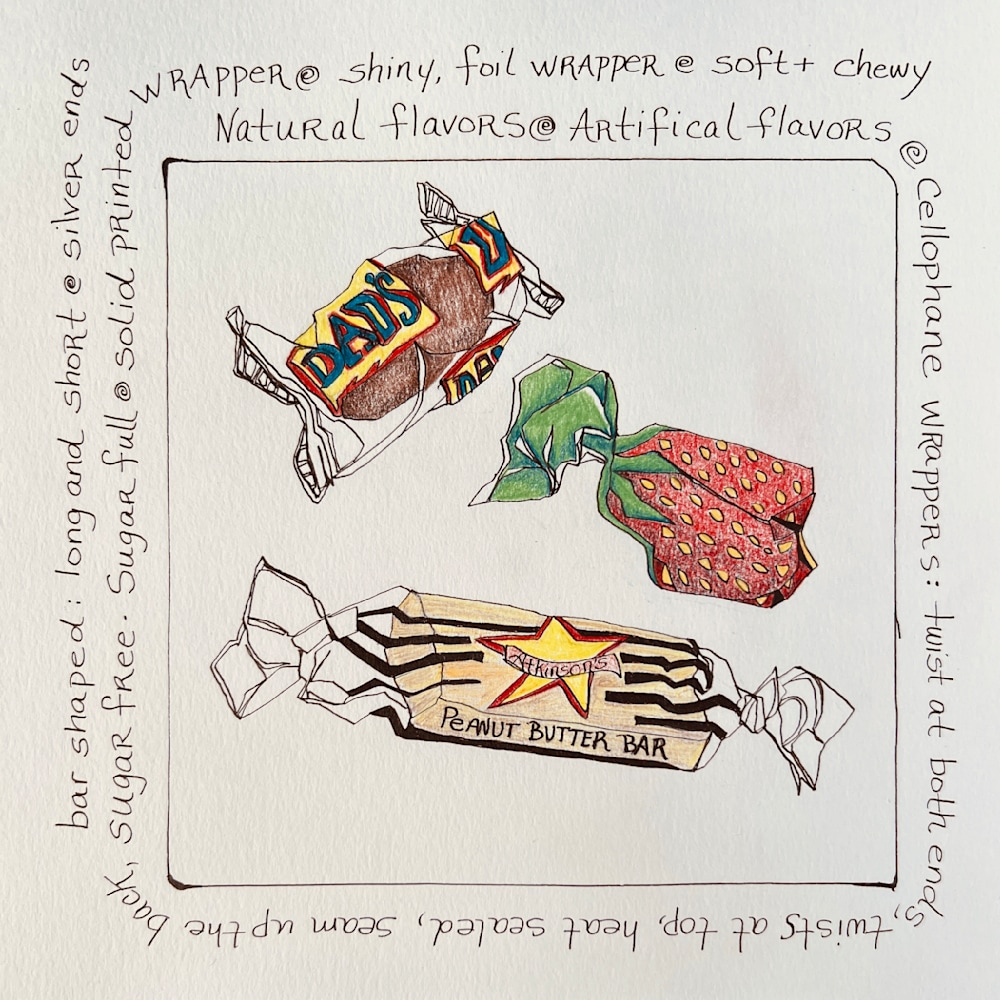 WRAPPER @ shiny, foil WRAPPER @ soft + chewy
Natural flavors @ Artifical flavors
@ Cellophane wrappers: twist at both ends,
twists at top, heat sealed, seam up the back,
sugar free. Sugar full @ solid printed
bar shaped: long and short @ silver ends
DAD'S
D
DAD
Atkinson's
PEANUT BUTTER BAR